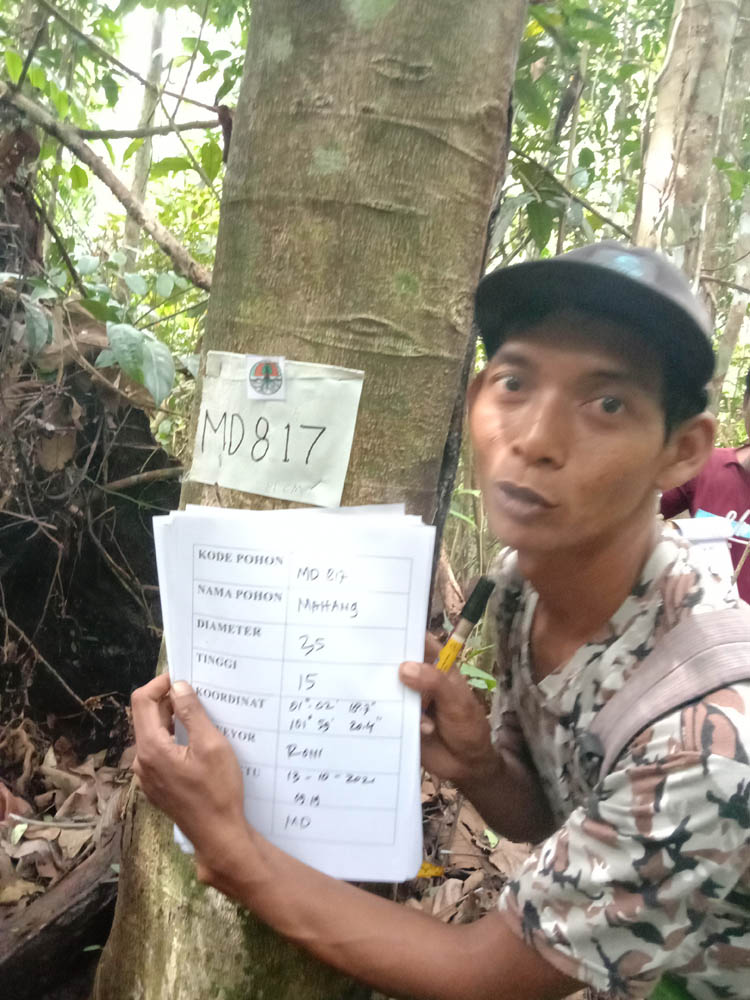 MD817
KODE POHON MD 817
NAMA POHON MAHANG
DIAMETER 35
TINGGI 15
KOORDINAT 01° 02'
101° 59' 20.4"
VEYOR ROHI
TU 13-10-202
09 19
MD